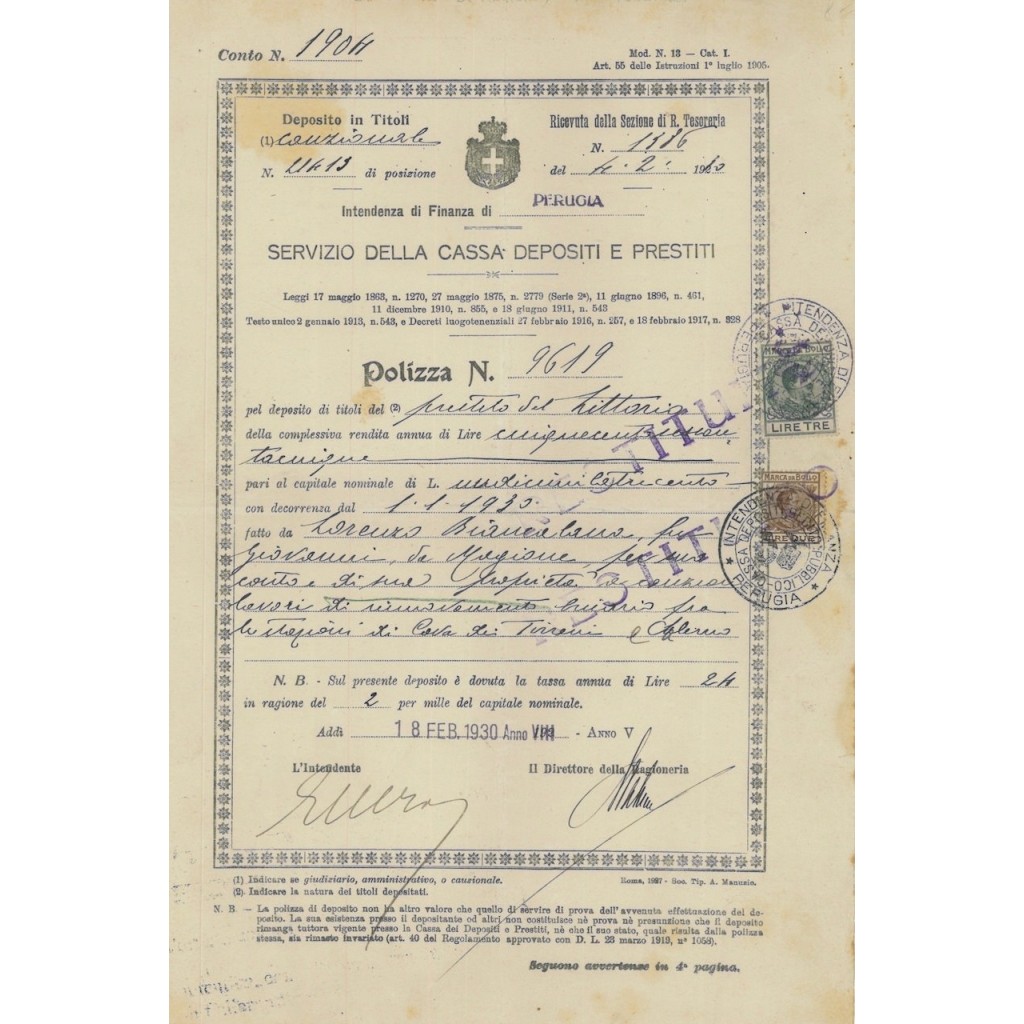 Conto N. 1904
Mod. N. 13 — Cat. I.
Art. 55 delle Istruzioni 1° luglio 1905.
Deposito in Titoli
(1) cauzionale
N. 21413 di posizione
Ricevuta della Sezione di R. Tesoreria
N. 1386
del 4. 2. 1930
Intendenza di Finanza di PERUGIA
SERVIZIO DELLA CASSA DEPOSITI E PRESTITI
Leggi 17 maggio 1863, n. 1270, 27 maggio 1875, n. 2779 (Serie 2ª), 11 giugno 1896, n. 461,
11 dicembre 1910, n. 855, e 18 giugno 1911, n. 543
Testo unico 2 gennaio 1913, n. 543, e Decreti luogotenenziali 27 febbraio 1916, n. 257, e 18 febbraio 1917, n. 328
Polizza N. 9619
pel deposito di titoli del (2) prestito del Littorio
della complessiva rendita annua di Lire
pari al capitale nominale di L.
con decorrenza dal 1.1.1930.
fatto da Lorenzo fu
Giovanni, da Magione per suo
conto e di sua proprietà a cauzione
lavori di rinnovamento binario fra
le stazioni di Cava dei Tirreni e Salerno
N. B. - Sul presente deposito è dovuta la tassa annua di Lire 24
in ragione del 2 per mille del capitale nominale.
Addì 18 FEB. 1930 Anno VIII - ANNO V
L'Intendente
Il Direttore della Ragioneria
MARCA DA BOLLO
LIRE TRE
MARCA DA BOLLO
LIRE DUE
INTENDENZA DI FINANZA
PERUGIA
(1) Indicare se giudiziario, amministrativo, o cauzionale.
(2) Indicare la natura dei titoli depositati.
Roma, 1927 - Soc. Tip. A. Manuzio.
N. B. — La polizza di deposito non ha altro valore che quello di servire di prova dell'avvenuta effettuazione del de-
posito. La sua esistenza presso il depositante od altri non costituisce nè prova nè presunzione che il deposito
rimanga tuttora vigente presso la Cassa dei Depositi e Prestiti, nè che il suo stato, quale risulta dalla polizza
stessa, sia rimasto invariato (art. 40 del Regolamento approvato con D. L. 23 marzo 1919, n° 1058).
Seguono avvertenze in 4ª pagina.